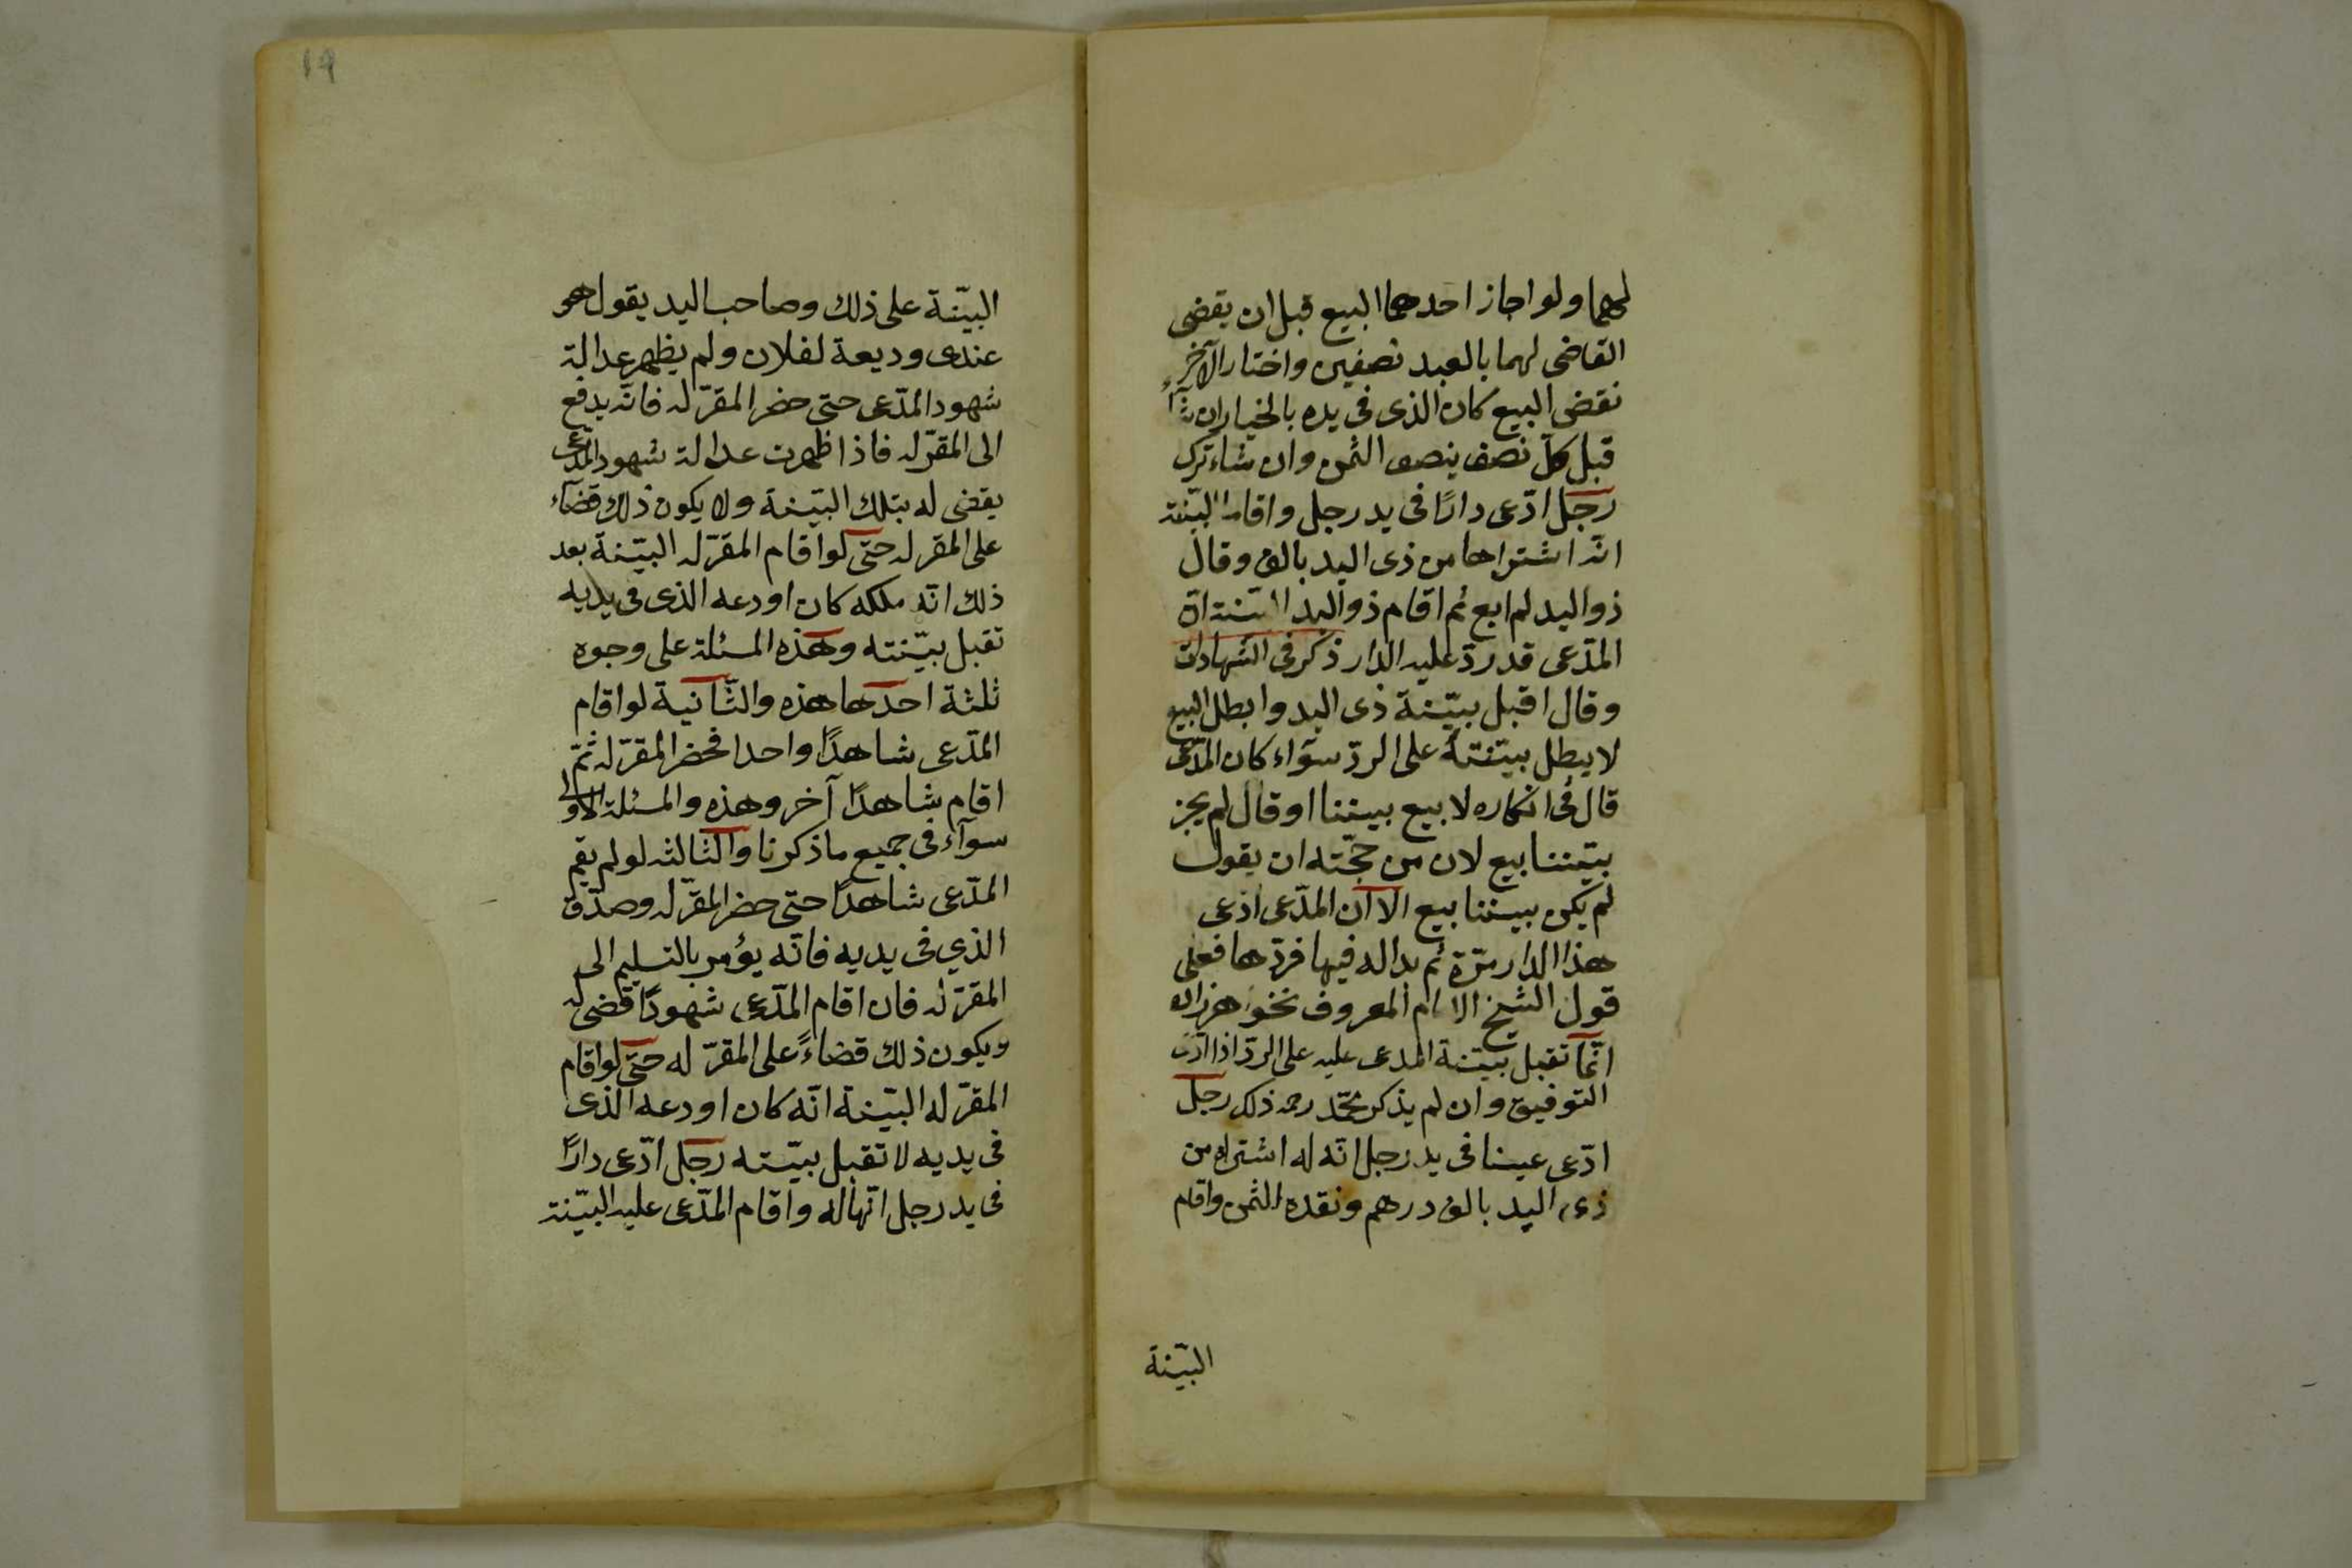 لهما ولو اجاز احدهما البيع قبل ان يقضى
القاضى لهما بالعبد نصفين واختار الآخر
نقض البيع كان الذى فى يده بالخيار ان شآء
قبل كل نصف بنصف الثمن وان شاء ترك
رجل ادّعى دارًا فى يد رجل واقام البيّنة
انّه اشتراها من ذى اليد بالف وقال
ذو اليد لم ابع ثم اقام ذو اليد البيّنة انّ
المدّعى قد ردّ عليه الدار ذكر فى الشهادات
وقال اقبل ببيّنة ذى اليد وابطل البيع
لا يبطل ببيّنته على الردّ سوآء كان المدّعى
قال فى انكاره لا بيع بيننا او قال لم يجز
بيننا بيع لان من حجّته ان يقول
لم يكن بيننا بيع الا ان المدّعى ادّعى
هذا الدار مرّة ثم بدا له فيها فردّها فعلى
قول الشيخ الامام المعروف بخواهرزاده
انّما تقبل بيّنة المدعى عليه على الردّ اذا ادّعى
التوفيق وان لم يذكر محمّد رحمه ذلك رجل
ادّعى عينا فى يد رجل انّه له اشتراه من
ذى اليد بالف درهم ونقده الثمن واقام
البيّنة
١٩
البيّنة على ذلك وصاحب اليد يقول هو
عندى وديعة لفلان ولم يظهر عدالة
شهود المدّعى حتى حضر المقرّ له فانّه يدفع
الى المقرّ له فاذا ظهرت عدالة شهود المدّعى
يقضى له بتلك البيّنة ولا يكون ذلك قضآء
على المقر له حتى لو اقام المقرّ له البيّنة بعد
ذلك انّه ملكه كان اودعه الذى فى يديه
تقبل بيّنته وهذه المسئلة على وجوه
ثلثة احدها هذه والثّانية لو اقام
المدّعى شاهدًا واحدا فحضر المقرّ له ثمّ
اقام شاهدًا آخر وهذه والمسئلة الاولى
سوآء فى جميع ما ذكرنا والثالثه لو لم يقم
المدّعى شاهدًا حتى حضر المقرّ له وصدّق
الذي فى يديه فانّه يؤمر بالتسليم الى
المقرّ له فان اقام المدّعى شهودًا قضى له
ويكون ذلك قضاءً على المقرّ له حتى لو اقام
المقرّ له البيّنة انّه كان اودعه الذى
فى يديه لا تقبل بيّنته رجل ادّعى دارًا
فى يد رجل انّها له واقام المدّعى عليه البيّنة